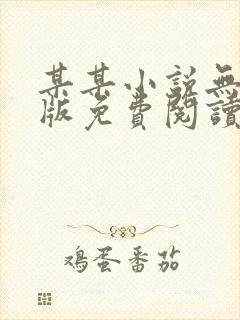 某某小說無
版免費閱讀
鸡蛋番茄